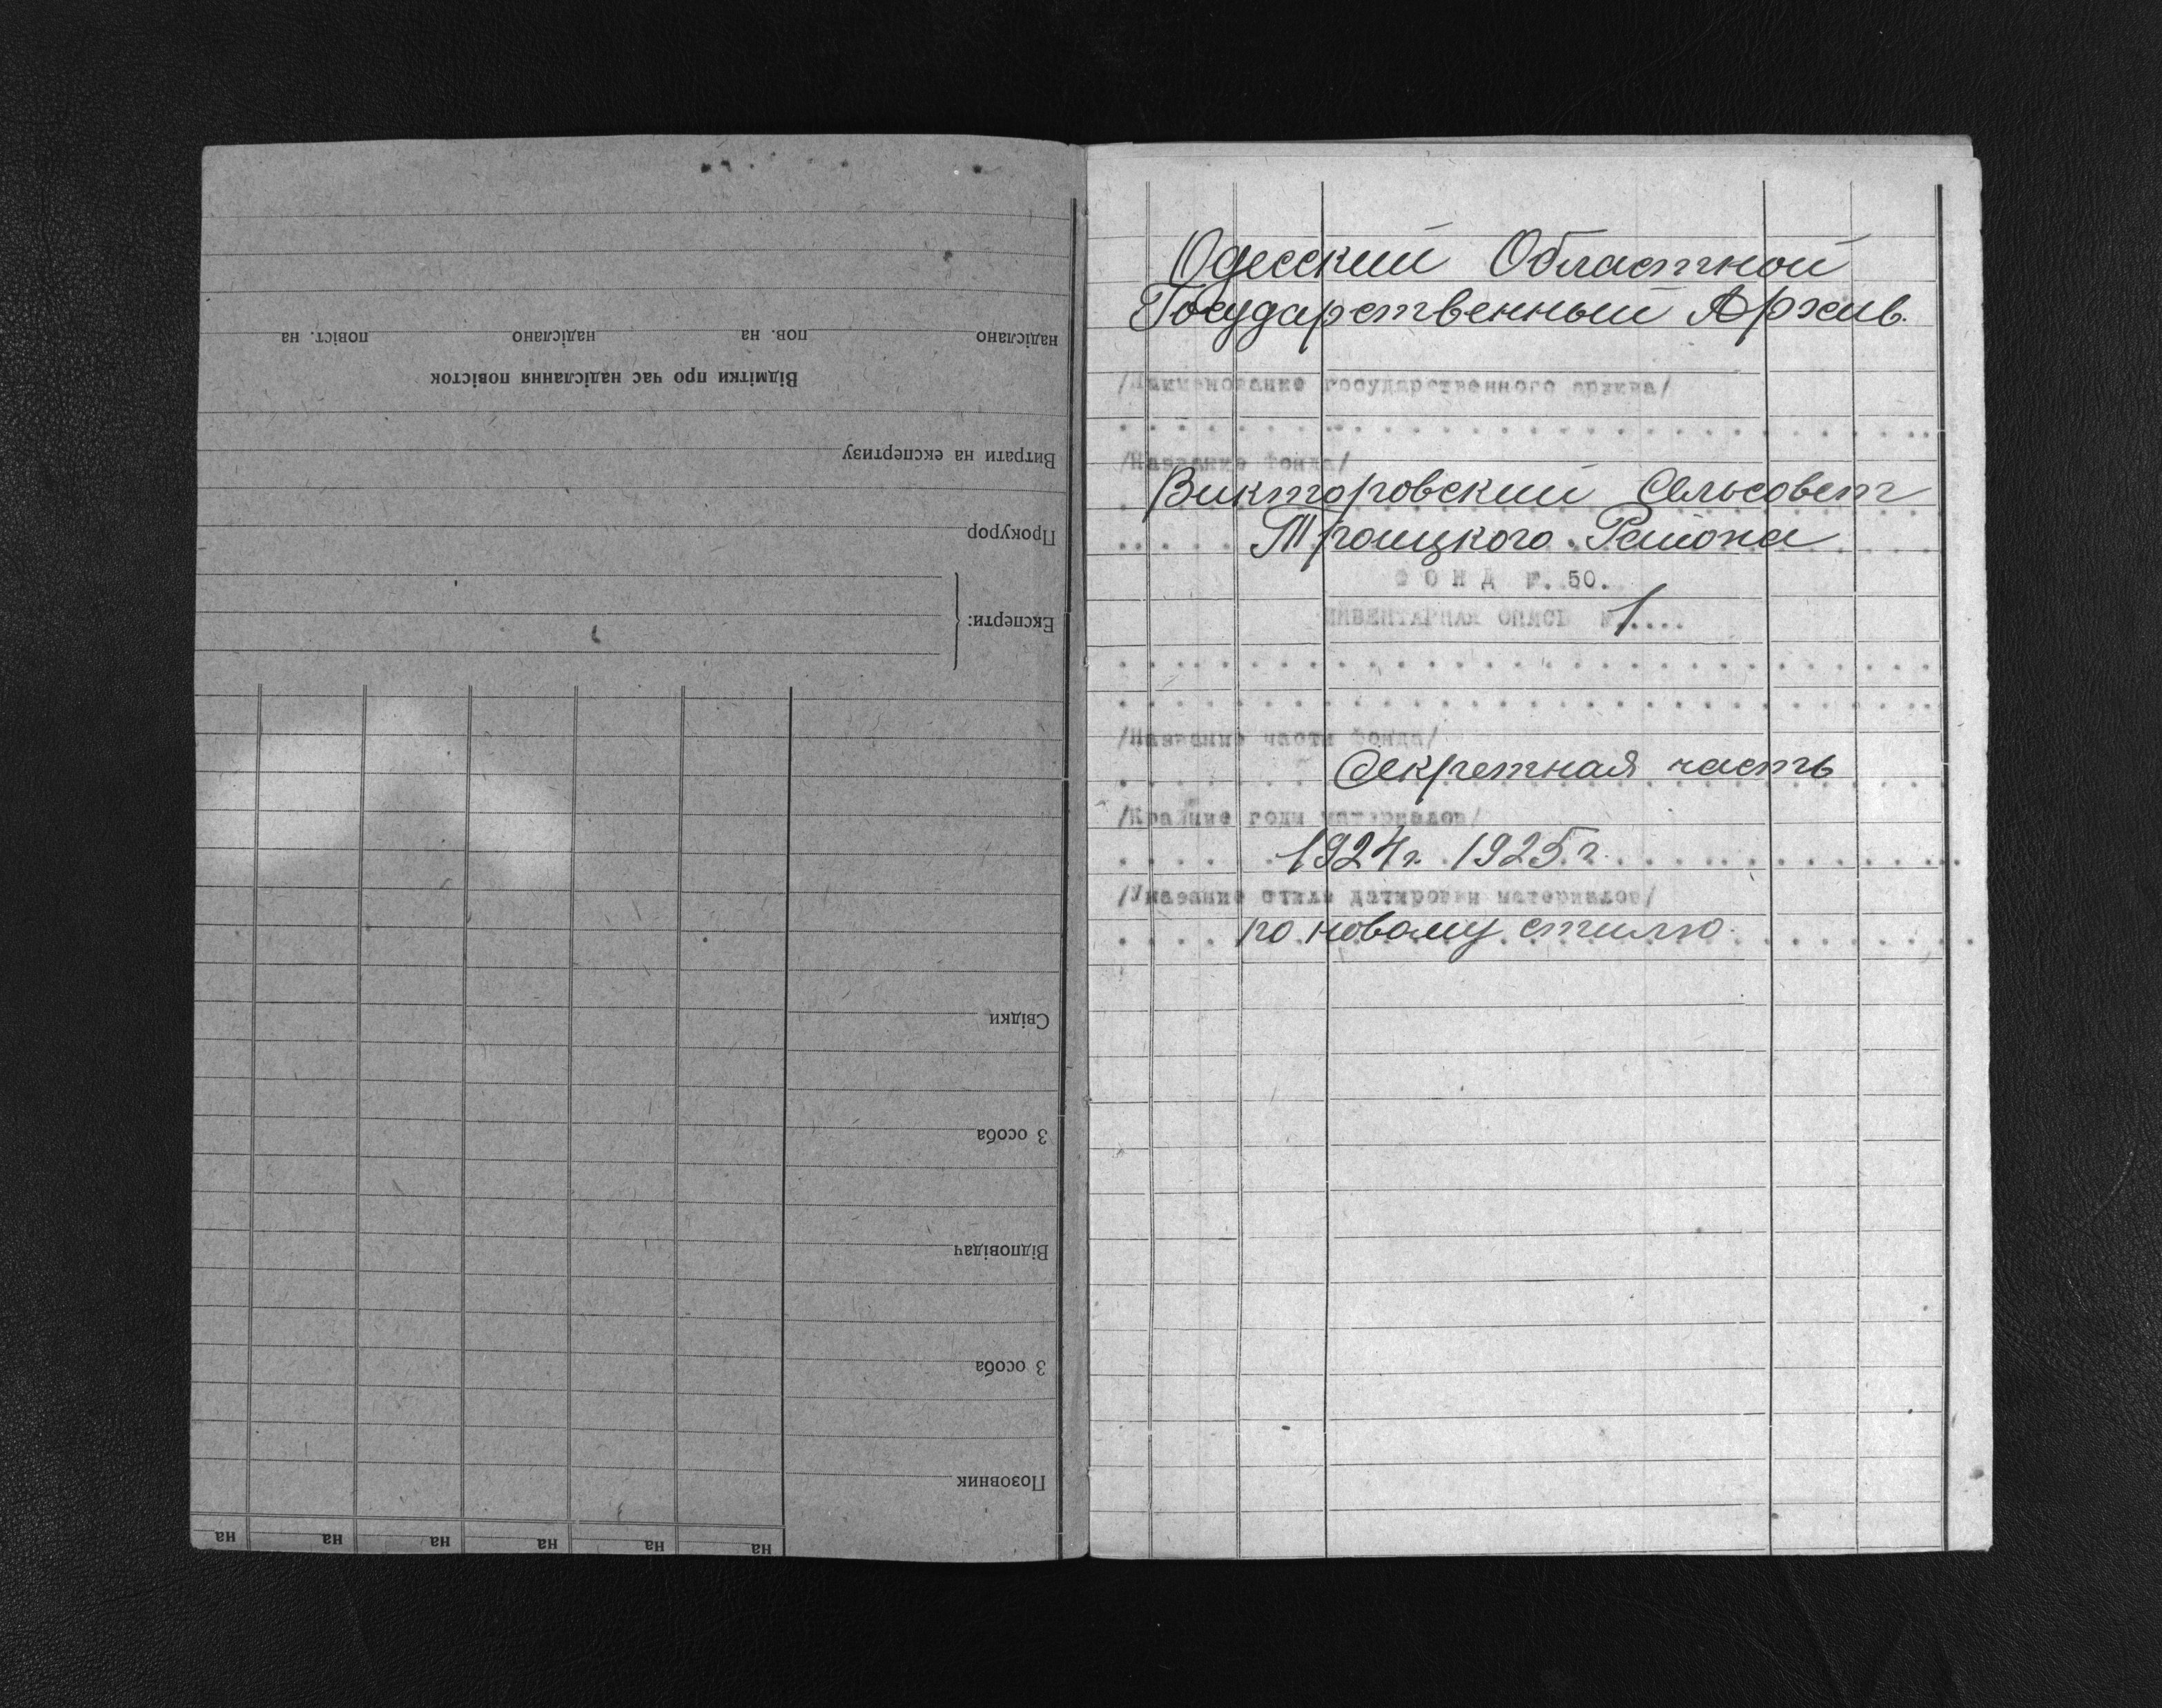 надіслано пов. на надіслано повіст. на
Відмітки про час надіслання повісток
Витрати на експертизу
Прокурор
Експерти:
Свідки
3 особа
Відповідач
3 особа
Позовник
на на на на на на
Одесский Областной
Государственный Архив.
/Наименование государственного архива/
/Название фонда/
Викторовский Сельсовет
Троицкого Района
ФОНД №. 50.
ИНВЕНТАРНАЯ ОПИСЬ № 1....
/Название части фонда/
Секретная часть
/Крайние годы материалов/
1924г. 1925г.
/Указание стиля датировки материалов/
по новому стилю.